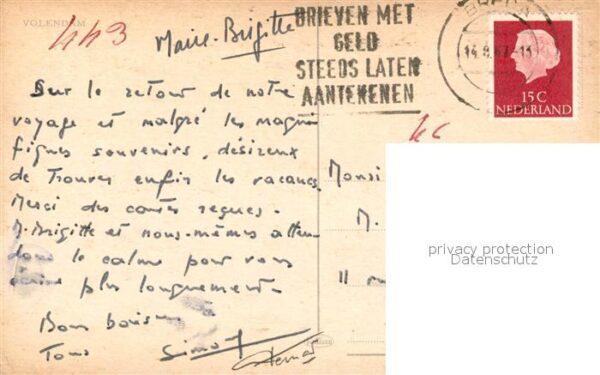 VOLENDAM
443
Marie-Brigitte
BRIEVEN MET
GELD
STEEDS LATEN
AANTEKENEN
BREDA
14.8.67
15 C
NEDERLAND
Sur le retour de notre
voyage et malgré les magni
fiques souvenirs, désireux
de trouver enfin les vacances.
Merci des cartes reçues.
M. Brigitte et nous-mêmes atten
dons le calme pour vous
écrire plus longuement.
Bons baisers
Tous
Simon
Monsi
M.
11
privacy protection
Datenschutz